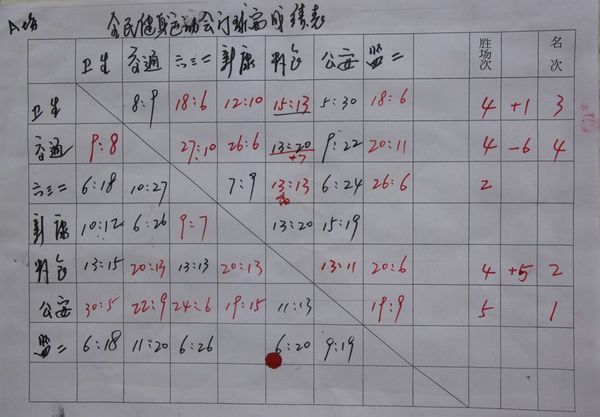 A场 全民健身运动会门球赛成绩表
卫生 交通 六三二 新康 公安 监二 胜场次 名次
卫生 8:9 18:6 12:10 15:13 5:30 18:6 4 +1 3
交通 9:8 27:10 26:6 13:20 +7 9:22 20:11 4 -6 4
六三二 6:18 10:27 7:9 13:13 6:24 26:6 2
新康 10:12 6:26 9:7 13:20 15:19
13:15 20:13 13:13 20:13 13:11 20:6 4 +5 2
公安 30:5 22:9 24:6 19:15 11:13 19:9 5 1
监二 6:18 11:20 6:26 6:20 9:19